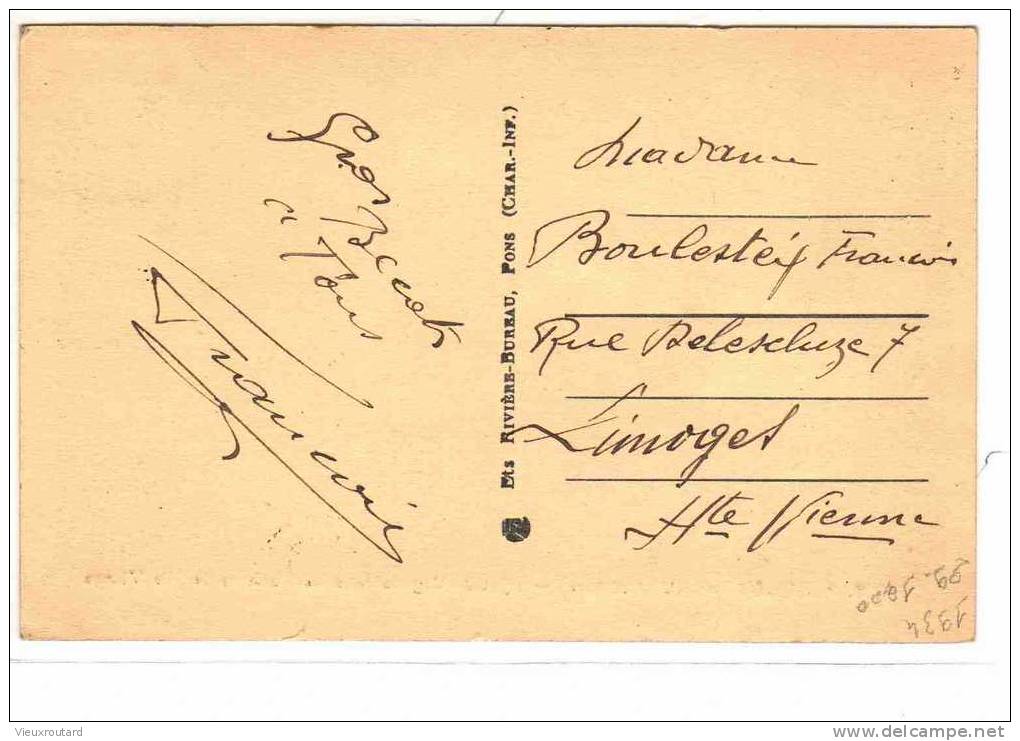 Gros Becots
à Tous
François
Ets RIVIÈRE-BUREAU, PONS (CHAR.-INF.)
Madame
Boulesteix François
Rue Delescluze 7
Limoges
Hte Vienne
1934
Vieuxroutard
delcampe.net